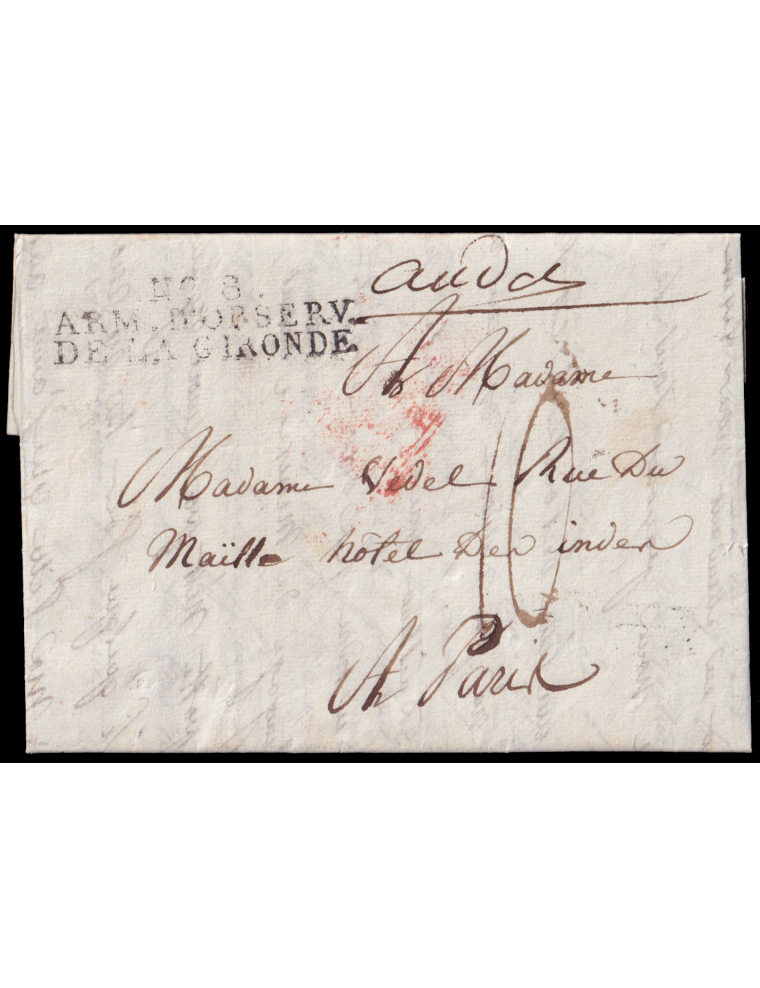 No 8.
ARM. D'OBSERV.
DE LA GIRONDE.
A Madame
Madame Vedel Rue Du
Maïlle hôtel Des indes
10
A Paris